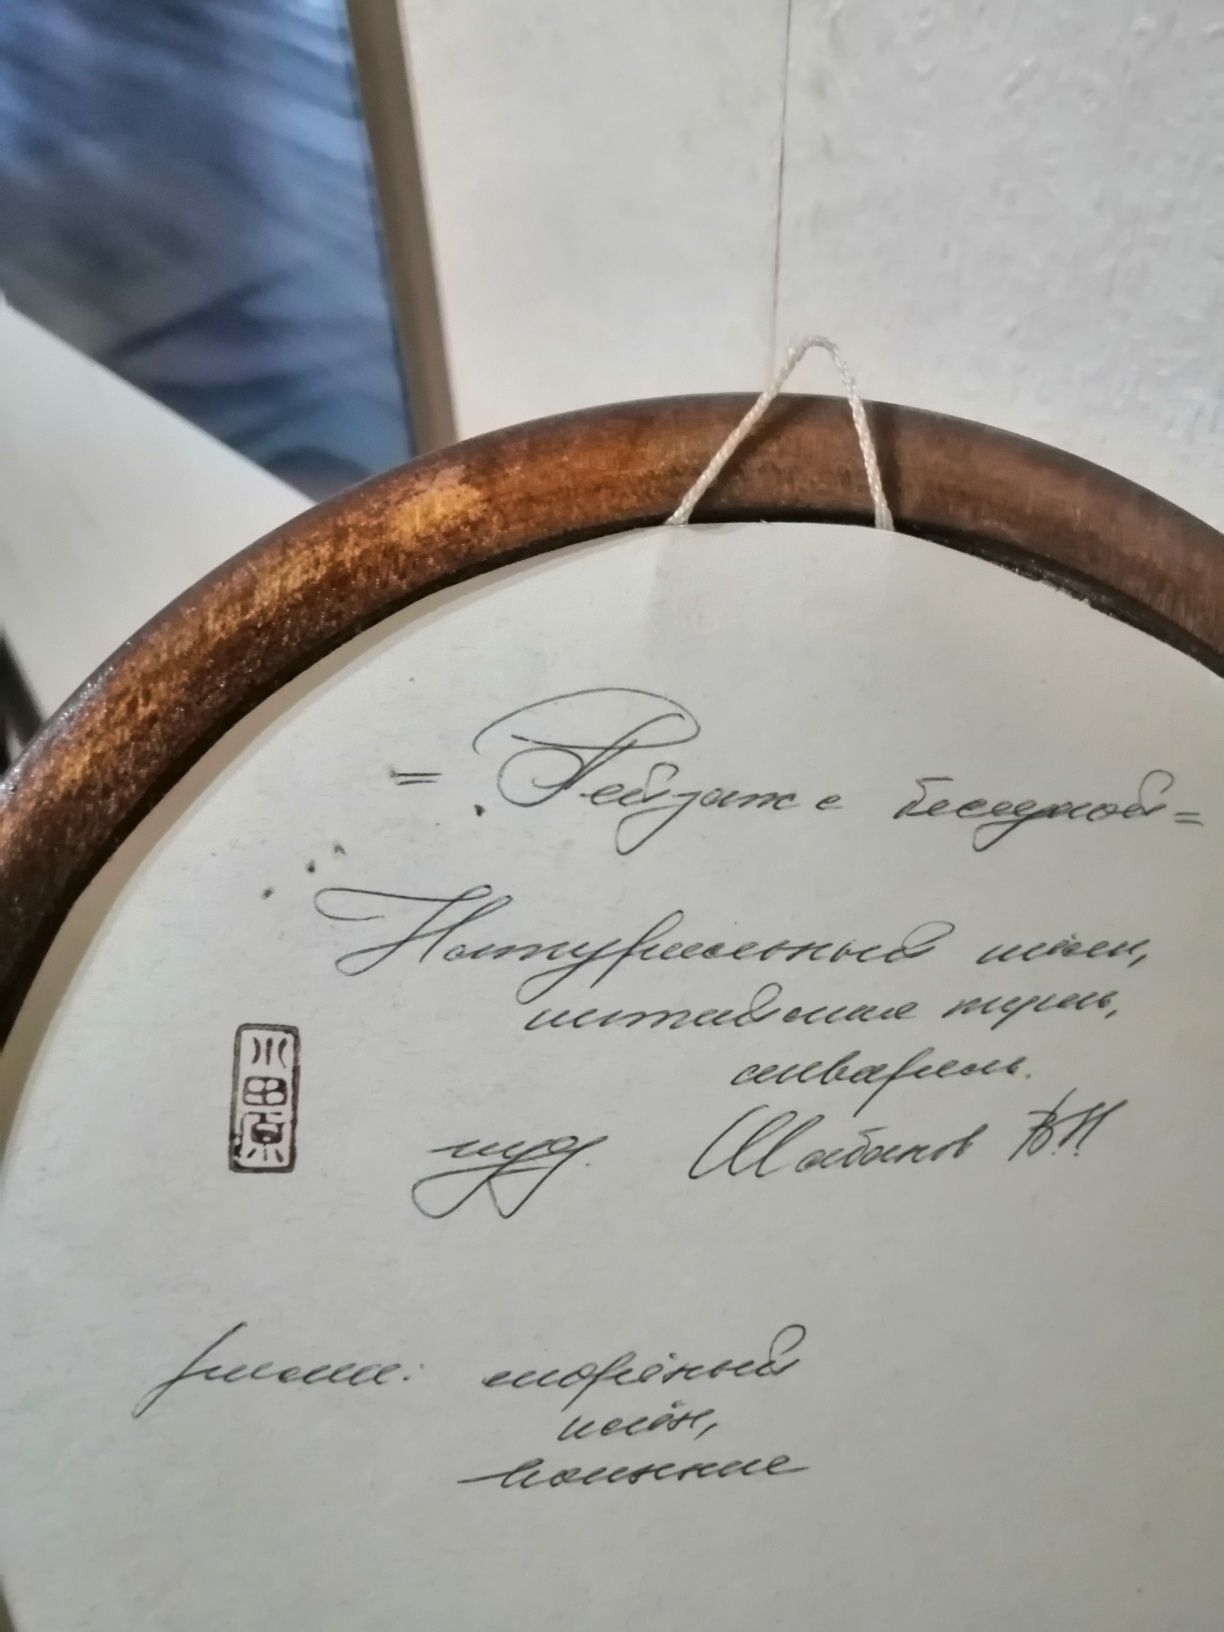 = Пейзаж с беседкой =
Натуральный шёлк,
китайская тушь,
акварель.
худ. Шабанов В.Н.
川田原
рама: морёный
клён,